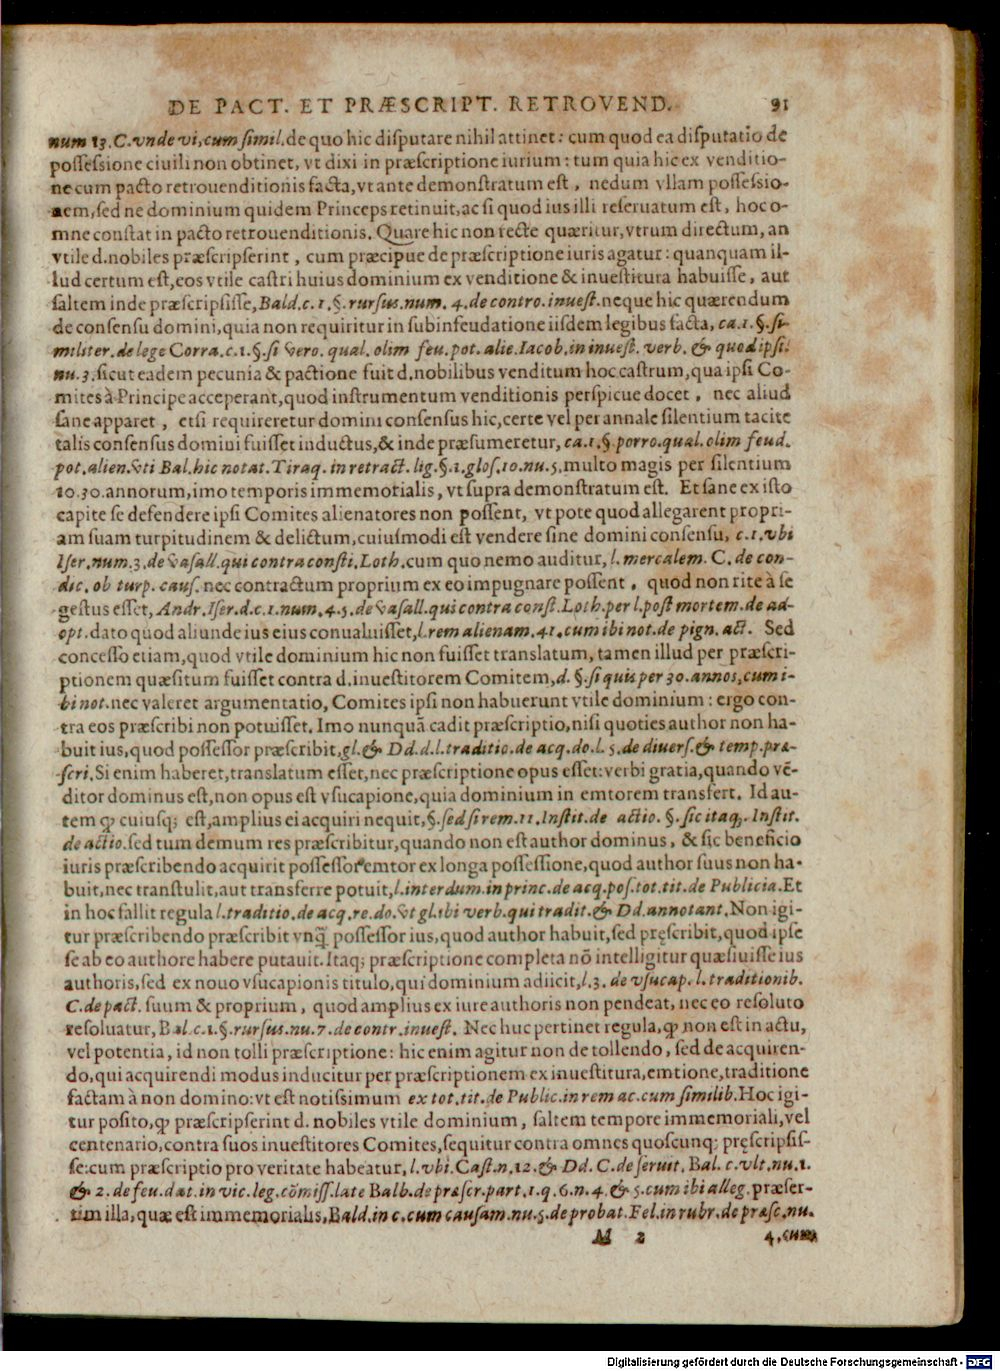 DE PACT. ET PRÆSCRIPT. RETROVEND. 91
num 13. C. vnde vi, cum simil. de quo hic disputare nihil attinet: cum quod ea disputatio de
possessione ciuili non obtinet, vt dixi in præscriptione iurium: tum quia hic ex venditio-
ne cum pacto retrouenditionis facta, vt ante demonstratum est, nedum vllam possessio-
nem, sed ne dominium quidem Princeps retinuit, ac si quod ius illi reseruatum est, hoc o-
mne constat in pacto retrouenditionis. Quare hic non recte quæritur, vtrum directum, an
vtile d. nobiles præscripserint, cum præcipue de præscriptione iuris agatur: quanquam il-
lud certum est, eos vtile castri huius dominium ex venditione & inuestitura habuisse, aut
saltem inde præscripsisse, Bald. c. 1. §. rursus. num. 4. de contro. inuest. neque hic quærendum
de consensu domini, quia non requiritur in subinfeudatione iisdem legibus facta, ca. 1. §. si-
militer. de lege Corra. c. 1. §. si vero. qual. olim feu. pot. alie. Iacob. in inuest. verb. & quod ipsi.
nu. 3. sicut eadem pecunia & pactione fuit d. nobilibus venditum hoc castrum, qua ipsi Co-
mites à Principe acceperant, quod instrumentum venditionis perspicue docet, nec aliud
sane apparet, etsi requireretur domini consensus hic, certe vel per annale silentium tacite
talis consensus domini fuisset inductus, & inde præsumeretur, ca. 1. §. porro. qual. olim feud.
pot. alien. vti Bal. hic notat. Tiraq. in retract. lig. §. 1. glos. 10. nu. 5. multo magis per silentium
10. 30. annorum, imo temporis immemorialis, vt supra demonstratum est. Et sane ex isto
capite se defendere ipsi Comites alienatores non possent, vt pote quod allegarent propri-
am suam turpitudinem & delictum, cuiusmodi est vendere sine domini consensu, c. 1. vbi
Iser. num. 3. de vasall. qui contra consti. Loth. cum quo nemo auditur, l. mercalem. C. de con-
dic. ob turp. caus. nec contractum proprium ex eo impugnare possent, quod non rite à se
gestus esset, Andr. Iser. d. c. 1. num. 4. 5. de vasall. qui contra const. Loth. per l. post mortem. de ad-
opt. dato quod aliunde ius eius conualuisset, l. rem alienam. 41. cum ibi not. de pign. act. Sed
concesso etiam, quod vtile dominium hic non fuisset translatum, tamen illud per præscri-
ptionem quæsitum fuisset contra d. inuestitorem Comitem, d. §. si quis per 30. annos, cum i-
bi not. nec valeret argumentatio, Comites ipsi non habuerunt vtile dominium: ergo con-
tra eos præscribi non potuisset. Imo nunquã cadit præscriptio, nisi quoties author non ha-
buit ius, quod possessor præscribit, gl. & Dd. d. l. traditio. de acq. do. l. 5. de diuers. & temp. præ-
scri. Si enim haberet, translatum esset, nec præscriptione opus esset: verbi gratia, quando vē-
ditor dominus est, non opus est vsucapione, quia dominium in emtorem transfert. Id au-
tem ꝙ cuiusq; est, amplius ei acquiri nequit, §. sed si rem. 11. Instit. de actio. §. sic itaq;. Instit.
de actio. sed tum demum res præscribitur, quando non est author dominus, & sic beneficio
iuris præscribendo acquirit possessor emtor ex longa possessione, quod author suus non ha-
buit, nec transtulit, aut transferre potuit, l. interdum. in princ. de acq. pos. tot. tit. de Publicia. Et
in hoc fallit regula l. traditio. de acq. re. do. vt gl. ibi verb. qui tradit. & Dd. annotant. Non igi-
tur præscribendo præscribit vnq̃ possessor ius, quod author habuit, sed pręscribit, quod ipse
se ab eo authore habere putauit. Itaq; præscriptione completa nõ intelligitur quæsiuisse ius
authoris, sed ex nouo vsucapionis titulo, qui dominium adiicit, l. 3. de vsucap. l. traditionib.
C. de pact. suum & proprium, quod amplius ex iure authoris non pendeat, nec eo resoluto
resoluatur, Bal. c. 1. §. rursus. nu. 7. de contr. inuest. Nec huc pertinet regula, ꝙ non est in actu,
vel potentia, id non tolli præscriptione: hic enim agitur non de tollendo, sed de acquiren-
do, qui acquirendi modus inducitur per præscriptionem ex inuestitura, emtione, traditione
factam à non domino: vt est notissimum ex tot. tit. de Public. in rem ac. cum similib. Hoc igi-
tur posito, ꝙ præscripserint d. nobiles vtile dominium, saltem tempore immemoriali, vel
centenario, contra suos inuestitores Comites, sequitur contra omnes quoscunq; pręscripsis-
se: cum præscriptio pro veritate habeatur, l. vbi. Cast. n. 12. & Dd. C. de seruit. Bal. c. vlt. nu. 1.
& 2. de feu. dat. in vic. leg. cõmiss. late Balb. de præscr. part. 1. q. 6. n. 4. & 5. cum ibi alleg. præser-
tim illa, quæ est immemorialis, Bald. in c. cum causam. nu. 5. de probat. Fel. in rubr. de præsc. nu.
M 2 4, cum
Digitalisierung gefördert durch die Deutsche Forschungsgemeinschaft - DFG